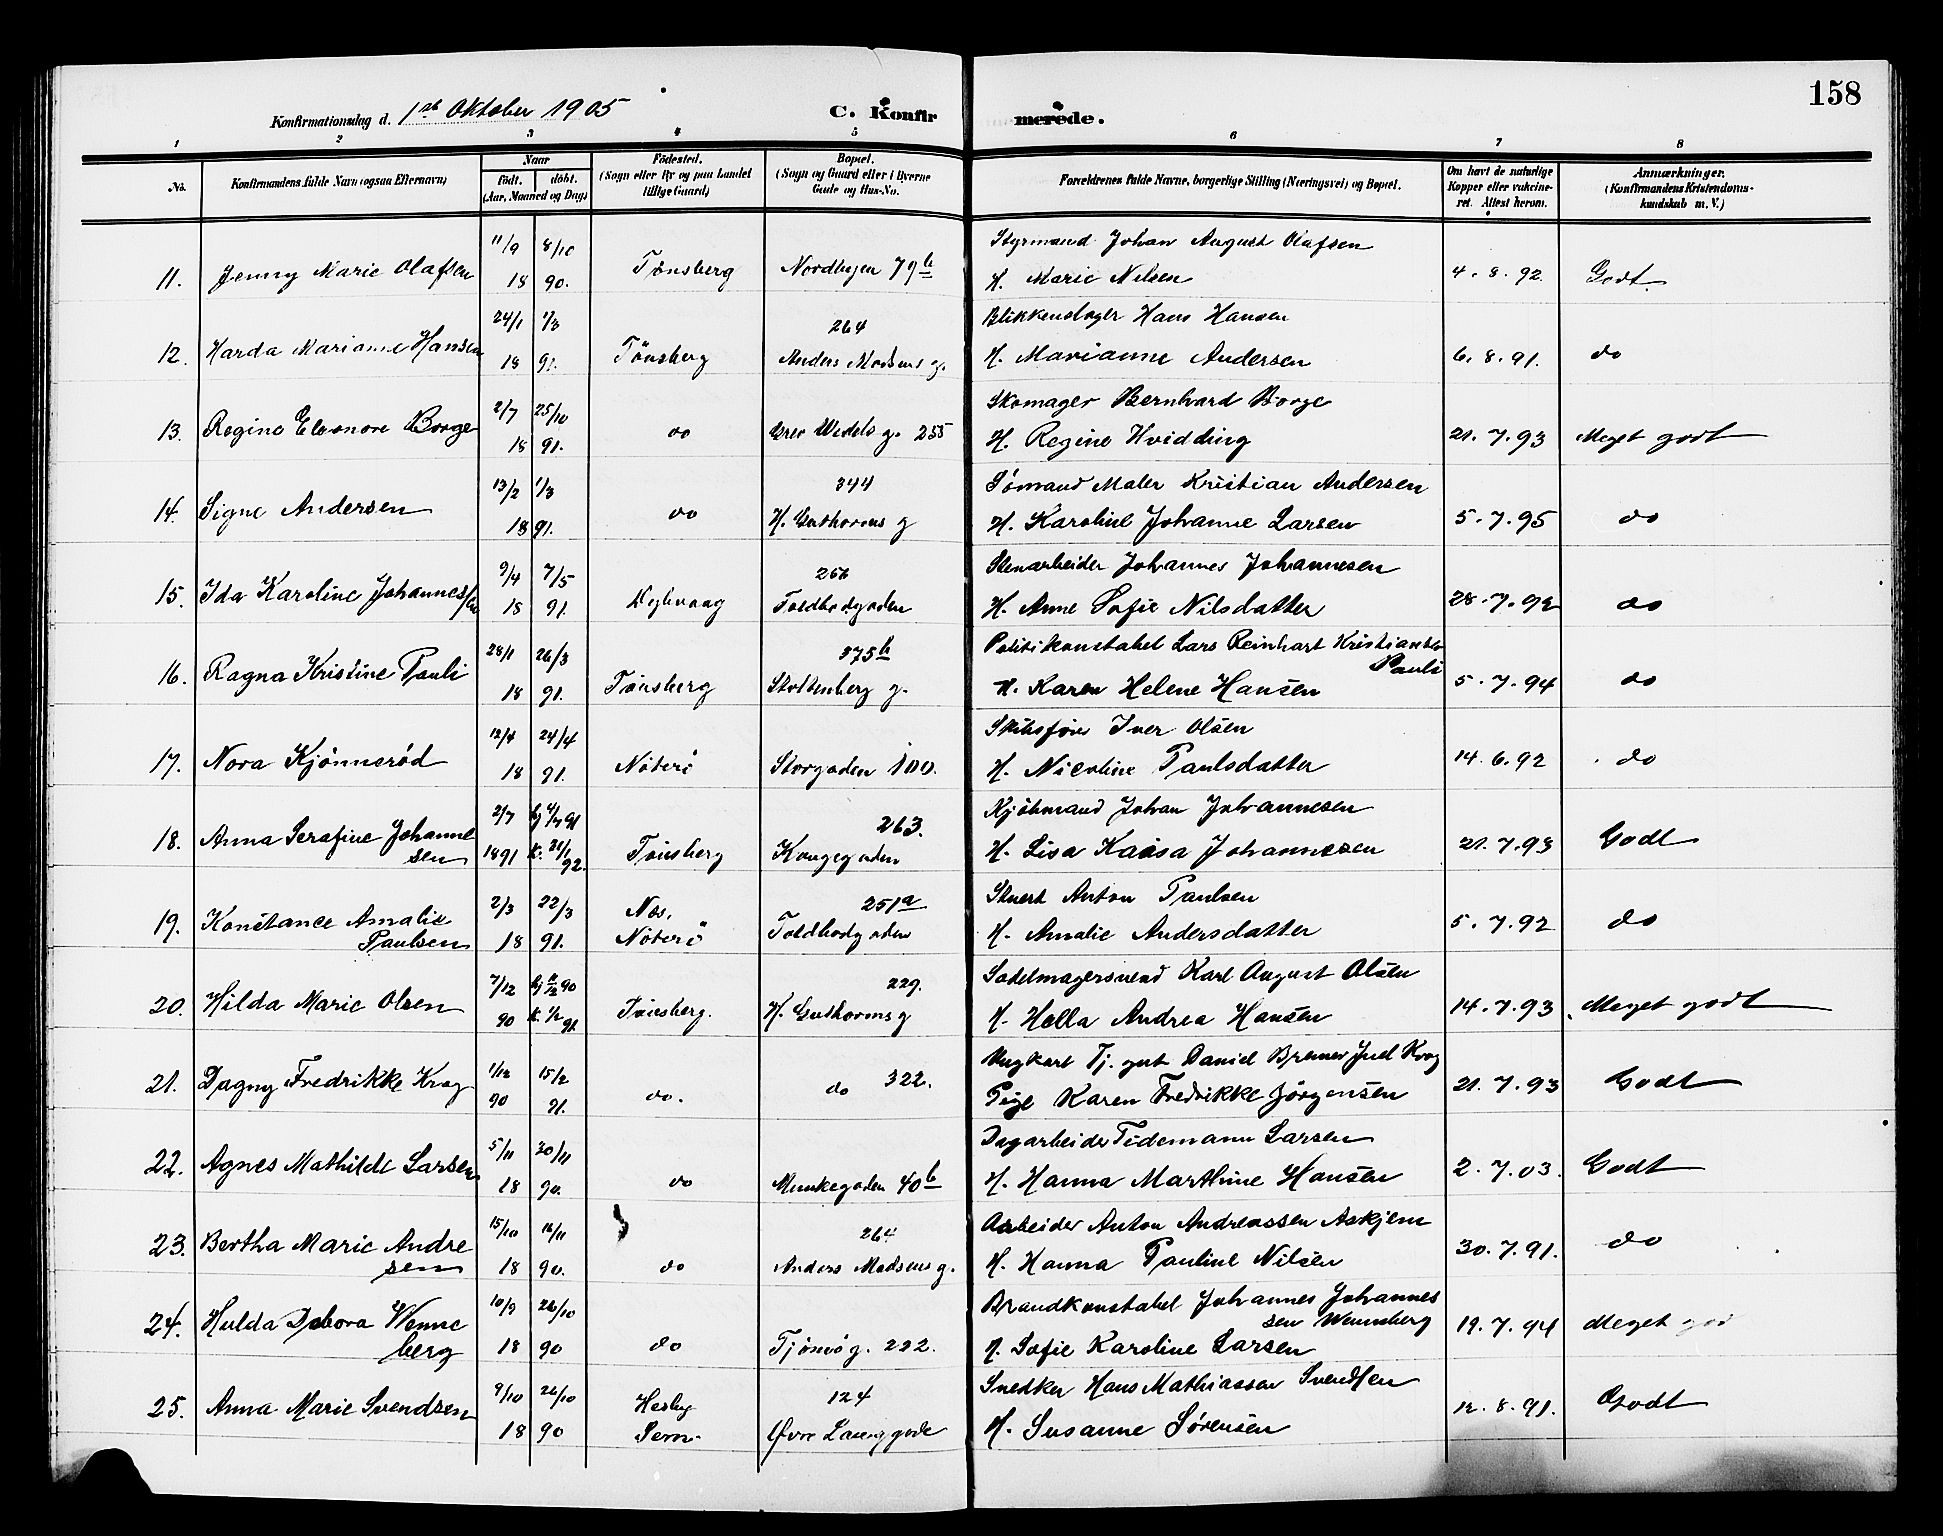 158
Konfirmationsdag d. 1ste Oktober 1905 C. Konfirmerede.
1 2 3 4 5 6 7 8
No. Konfirmandens fulde Navn (ogsaa Efternavn) Naar født. døbt. (Aar, Maaned og Dag) Fødested. (Sogn eller By og paa Landet tillige Gaard) Bopæl. (Sogn og Gaard eller i Byerne Gade og Hus-No. Forældrenes fulde Navne, borgerlige Stilling (Næringsvei) og Bopæl. Om havt de naturlige Kopper eller vaccineret. Attest herom. Anmærkninger. (Konfirmandens Kristendomskundskab m. V.)
11/9 8/10 Styrmand Johan August Olafsen
11. Jenny Marie Olafsen 18 90. Tønsberg Nordbyen 79b H. Marie Nilsen 4.8.92. Godt
24/1 1/3 264 Blikkenslager Hans Hansen
12. Harda Marianne Hansen 18 91. Tönsberg Anders Madsens g. H. Marianne Andersen 6.8.91. do
2/7 25/10 Skomager Bernhard Borge
13. Regine Eleonore Borge 18 91. do Grev Wedels g. 255 H. Regine Hvidding 21.7.93 Meget godt
13/2 1/3 344 Sömand Maler Kristian Andersen
14. Signe Andersen 18 91. do H. Guthorms g H. Karoline Johanne Larsen 5.7.95 do
9/4 7/5 Stenarbeider Johannes Johannesen
15. Ida Karoline Johannessen 18 91. Toldbodgaden H. Anne Sofie Nilsdatter 28.7.92 do
28/1 26/3 375b Politikonstabel Lars Reinhart Kristiansen Pauli
16. Ragna Kristine Pauli 18 91. Tönsberg Stoltenberg g. H. Karen Helene Hansen 5.7.94 do
12/4 24/4 Skibsfører Iver Olsen
17. Nora Kjönnerød 18 91. Nöterö Storgaden 100. H. Nicoline Paulsdatter 14.6.92 do
2/7 263. Kjöbmand Johan Johannesen
18. Anna Serafine Johannesen 1891 K. 21/1 92. Tönsberg Kongegaden H. Lisa Kaisa Johannessen 21.7.93 Godt
2/3 22/3 Nes, 251a Stuert Anton Paulsen
19. Konstance Amalie Paulsen 18 91. Nöterö Toldbodgaden H. Amalie Andersdatter 5.7.92 do
7/12 90 229. Sadelmagersvend Karl August Olsen
20. Hilda Marie Olsen 90 91. Tönsberg. H. Guthorms g H. Hella Andrea Hansen 14.7.93 Meget godt
1/12 15/2 322. Ungkarl Tj. gut Daniel Bremer Juel Krog
21. Dagny Fredrikke Krog 90 91. do. do Pige Karen Fredrikke Jörgensen 21.7.93 Godt
5/11 30/11 Dagarbeider Tidemann Larsen
22. Agnes Mathilde Larsen 18 90. do Munkegaden 40b H. Hanna Marthine Hansen 2.7.03. Godt
15/10 16/11 264 Arbeider Anton Andreassen Askjem
23. Bertha Marie Andresen 18 90. do Anders Madsens g. H. Hanna Pauline Nilsen 30.7.91. do
10/9 26/10 Brandkonstabel Johannes Johannessen Wennberg
24. Hulda Debora Wenneberg 18 90 do Tjömö g. 222. H. Sofie Karoline Larsen 19.7.94 Meget
9/10 26/10 Hesby 124 Snedker Hans Mathiassen Svendsen
25. Anna Marie Svendsen 18 90 Sem. Øvre Langgade H. Susanne Sørensen 12.8.91. Godt